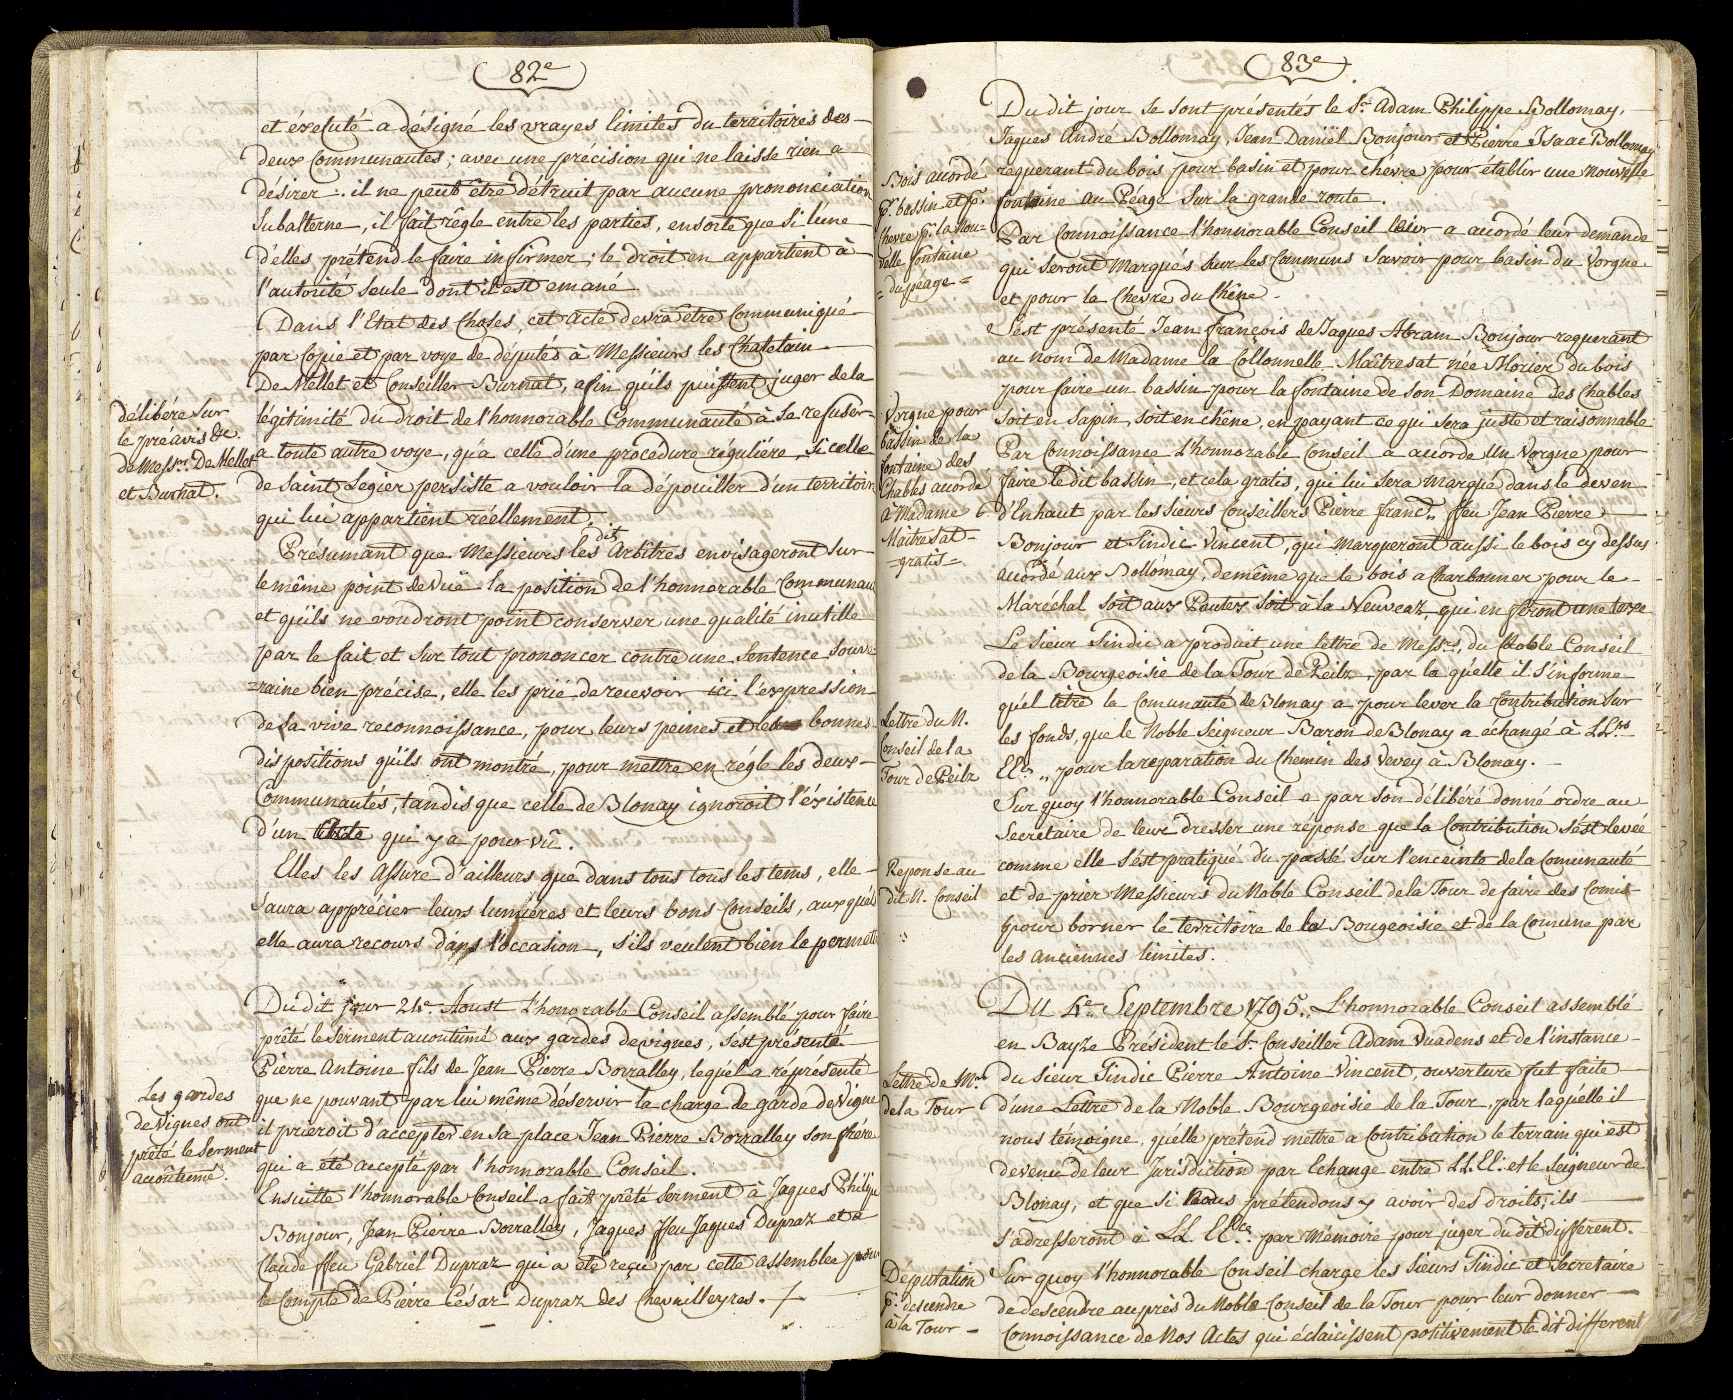 82e
et éxécuté a désigné les vrayes limites du territoires des
deux Communautés; avec une précision qui ne laisse rien a
désirer. il ne peut être détruit par aucune prononciation
Subalterne, il fait règle entre les parties, ensorte que si l'une
d'elles prétend le faire infirmer; le droit en appartient à
l'autorité seule dont il est emané.
Dans l'Etat des Choses, cet acte devra être Communiqué
par Copie et par voye de députés à Messieurs les Chatelain
De Mellet et Conseiller Burnat, afin qu'ils puissent juger de la
légitimité du droit de l'honnorable Communauté à se refuser
a toute autre voye, qu'a celle d'une procédure régulière, si celle
de Saint Legier persiste a vouloir la dépouiller d'un territoire
qui lui appartient réellement.
délibére sur
le préavis &c.
de Messrs De Mellet
et Burnat.
Présumant que Messieurs les dits Arbitres envisageront sur
le même point de vuë la position de l'honnorable Communau
et qu'ils ne voudront point conserver une qualité inutille
par le fait et sur tout prononcer contre une Sentence souve
=raine bien précise, elle les prie de recevoir ici l'expression
de sa vive reconnoissance, pour leurs peines et les bonnes
dispositions qu'ils ont montré, pour mettre en régle les deux
Communautés, tandis que celle de Blonay ignoroit l'éxistence
d'un Acte qui y a pourvû.
Elles les Assure d'ailleurs que dans tous tous les tems, elle
saura apprécier leurs lumières et leurs bons Conseils, auxquels
elle aura recours dans l'occasion, s'ils veulent bien le permett
Du dit jour 24e Aoust L'honorable Conseil assemblé pour faire
prêté le serment accoutumé aux gardes de vignes, s'est présenté
Pierre Antoine fils de Jean Pierre Borralley, lequel a réprésenté
que ne pouvant par lui même déservir la charge de garde de Vigne
il prieroit d'accepter en sa place Jean Pierre Borralley son frère
qui a été accepté par l'honnorable Conseil.
Les gardes
de Vignes ont
prêté le serment
acoutumé.
Ensuitte l'honnorable Conseil a fait prêté serment à Jaques Philipe
Bonjour, Jean Pierre Borralley, Jaques ffeu Jaques Dupraz et à
Claude ffeu Gabriel Dupraz qui a été reçu par cette assemblée pour
le Compte de Pierre César Dupraz des Chevalleyres.
83e
Du dit jour se sont présentés le Sr. Adam Philippe Bollomay,
Jaques André Bollomay, Jean Daniël Bonjour et Pierre Isaac Bollomay
requerant du bois pour basin et pour chévre pour établir une nouvelle
fontaine au Péage sur la grande route.
Bois accordé
pr. bassin et pr.
Chevre pr. la nou=
velle fontaine
=du péage=
Par Connoissance l'honnorable Conseil leur a accordé leur demande
qui seront Marqués sur les Communs Savoir pour basin du Vorgne
et pour la Chevre du Chêne.
S'est présenté Jean François de Jaques Abram Bonjour requerant
au nom de Madame la Collonnelle Maîtresat née Morier du bois
pour faire un bassin pour la fontaine de son Domaine des Chables
soit en sapin, soit en chêne, en payant ce qui sera juste et raisonnable
Par Connoissance L'honnorable Conseil a accorde Un Vorgne pour
faire le dit bassin, et cela gratis, qui lui sera marqué dans le deven
d'Enhaut par les sieurs Conseillers Pierre francs. ffeu Jean Pierre
Bonjour et Sindic Vincent, qui marqueront aussi le bois cy dessus
accordé aux Bollomay, de même que le bois a Charbonner pour le
Maréchal soit aux Pautex soit à la Neuvcaz, qui en feront une taxe
Vorgne pour
bassin de la
fontaine des
Chables accordé
a Madame
Maitresat=
=gratis=
Le Sieur Sindic a produit une lettre de Messrs. du Noble Conseil
de la Bourgeoisie de la Tour de Peilz, par la quelle il s'informe
quel titre la Comunauté de Blonay a pour lever la Contribution sur
les fonds, que le Noble Seigneur Baron de Blonay a échangé à LLrs
Ees,, pour la reparation du Chemin des Vevey à Blonay.
Lettre du N.
Conseil de la
Tour de Peilz
Sur quoy l'honnorable Conseil a par son délibéré donné ordre au
Secretaire de leur dresser une réponse que la Contribution s'est levée
comme elle s'est pratiqué du passé sur l'enceinte de la Comunauté
et de prier Messieurs du Noble Conseil de la Tour de faire des Comis
pour borner le territoire de la Bougeoisie et de la Comune par
les anciennes limites.
Reponse au
dit N. Conseil
Du 4e. Septembre 1795,, L'honnorable Conseil assemblé
en Bayze Président le Sr. Conseiller Adam Vuadens et de l'instance
du sieur Sindic Pierre Antoine Vincent, ouverture fut faite
d'une Lettre de la Noble Bourgeoisie de la Tour, par laquelle il
nous témoigne, qu'elle prétend mettre a Contribution le terrain qui est
devenu de leur Jurisdiction par Echange entre LL.EE. et le Seigneur de
Blonay, et que si Nous prétendons y avoir des droits, ils
s'adresseront à LL. EEce. par Mémoire pour juger du dit different.
Lettre de Mrs
de la Tour
Sur quoy l'honnorable Conseil charge les sieurs Sindic et Secretaire
de descendre auprès du Noble Conseil de la Tour pour leur donner
Connoissance de Nos Actes qui éclaicissent positivement le dit different
Députation
pr. descendre
à la Tour